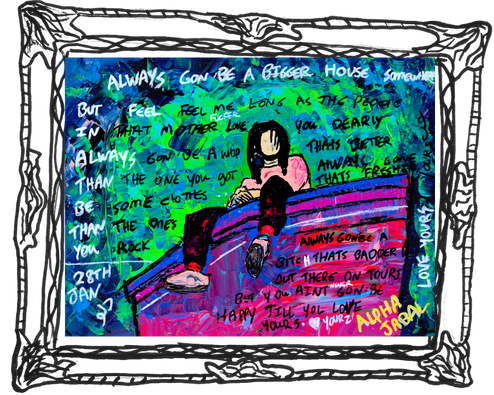 ALWAYS GON BE A BIGGER HOUSE SOMEWHERE
BUT FEEL FEEL ME LONG AS THE PEOPLE
IN THAT MOTHER FUCKER LOVE YOU DEARLY
ALWAYS GON BE A WHIP THATS BETER
THAN THE ONE YOU GOT ALWAYS GONE
BE SOME CLOTHES THATS FRESHER
THAN THE ONES
YOU ROCK
28TH
JAN
ALWAYS GONBE A
BITCH THATS BADDER
OUT THERE ON TOURS
BUT YOU AINT NIGGA GON BE
HAPPY TILL YOU LOVE
YOURS. YOURZ
LOVE YOURS
ALPHA
JABAL